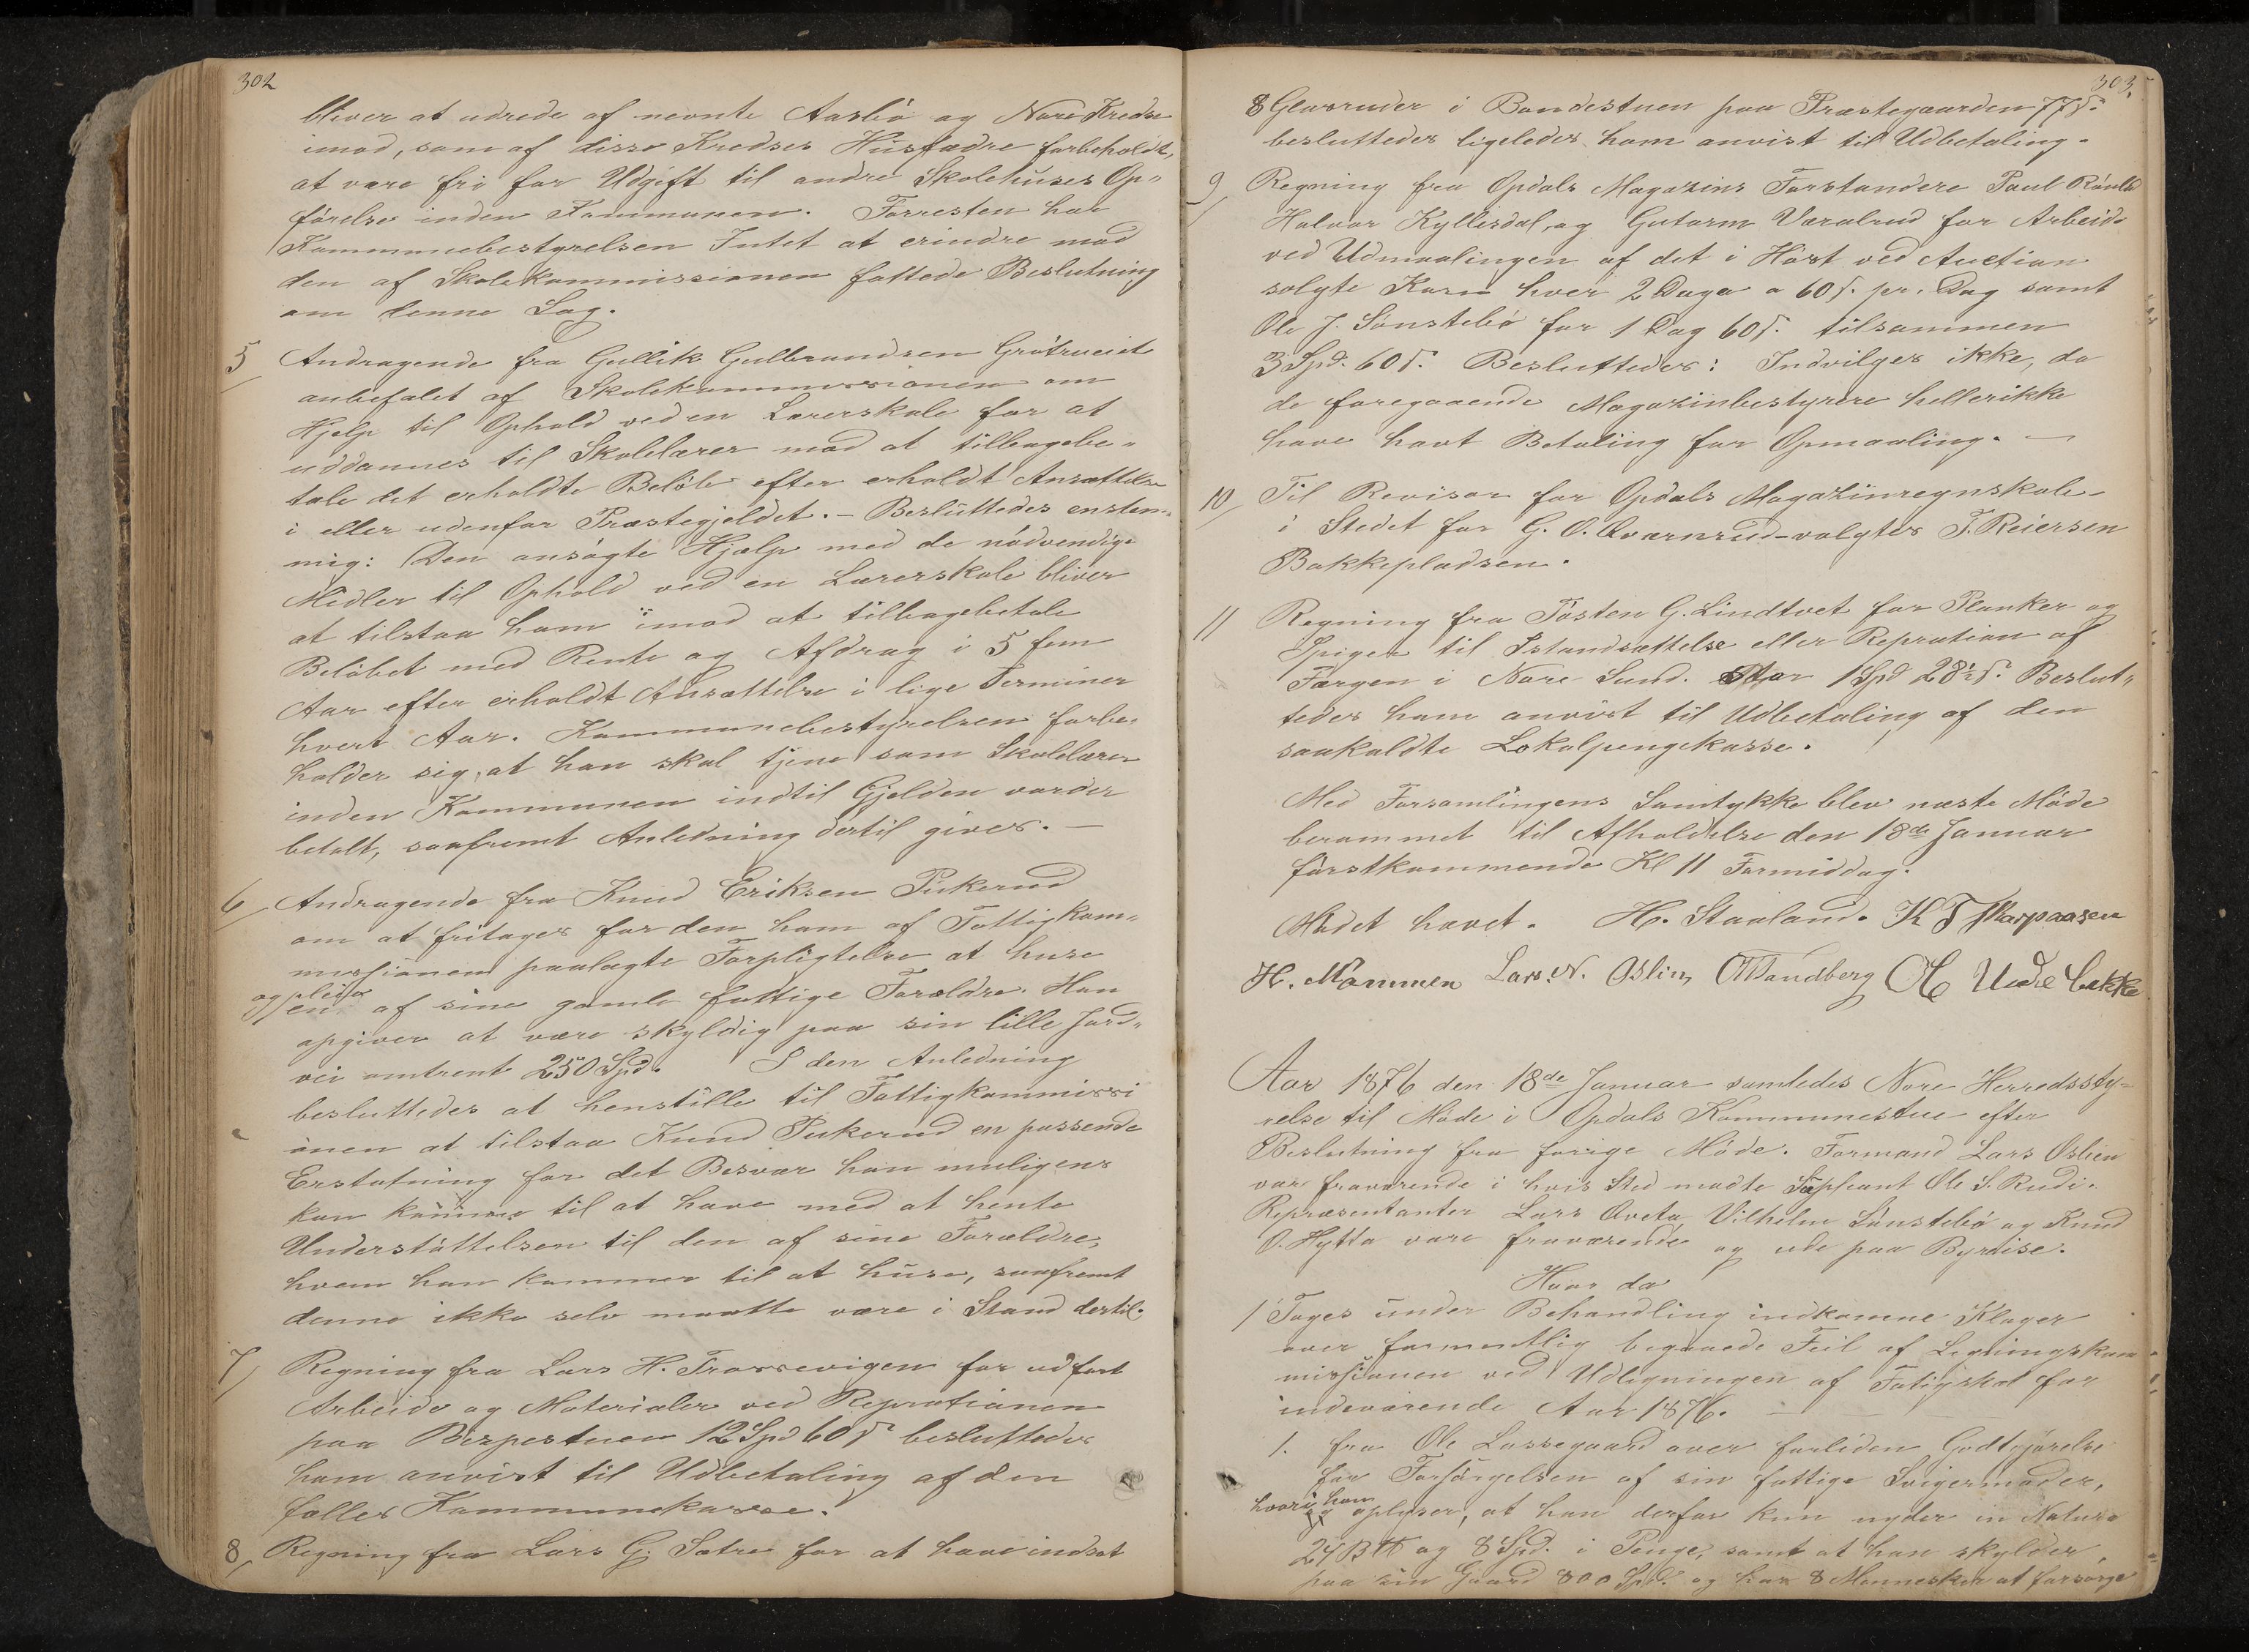 302
bliver at udrede af nevnte Aasbø og Nore Kredse
imod, som af disse Kredses Husfædre forbeholdt,
at være fri for Udgift til andre Skolehuses Op-
førelse inden Kommunen. Forresten har
Kommunebestyrelsen Intet at erindre mod
den af Skolekommissionen fattede Beslutning
om denne Sag.
5/ Andragende fra Gullik Gulbrandsen Grøtrueiet
anbefalet af Skolekommissionen om
Hjelp til Ophold ved en Lærerskole for at
uddannes til Skolelærer mod at tilbagebe-
tale det erholdte Beløb efter erholdt Ansættelse
i eller udenfor Præstegjeldet. – Besluttedes enstem-
mig: Den ansøgte Hjælp med de nødvendige
Midler til Ophold ved en Lærerskole bliver
at tilstaa ham imod at tilbagebetale
Beløbet med Rente og Afdrag i 5 fem
Aar efter erholdt Ansættelse i lige Terminer
hvert Aar. Kommunebestyrelsen forbe-
holder sig, at han skal tjene som Skolelærer
inden Kommunen indtil Gjelden vorder
betalt, saafremt Anledning dertil gives. —
6/ Andragende fra Knud Eriksen Pukerud
om at fritages for den ham af Fattigkom-
missionen paalagte Forpligtelse at huse
og pleie
en af sine gamle fattige Forældre. Han
opgiver at være skyldig paa sin lille Jord-
vei omtrent 250 Spd. I den Anledning
besluttedes at henstille til Fattigkommissi
onen at tilstaa Knud Pukerud en passende
Erstatning for det Besvær han muligens
kan komme til at have med at hente
Understøttelsen til den af sine Forældre,
hvem han kommer til at huse, saafremt
denne ikke selv maatte være i Stand dertil.
7/ Regning fra Lars H. Traasevigen for udført
Arbeide og Materialer ved Reprationen
paa Bispestuen 12 Spd 60 s besluttedes
ham anvist til Udbetaling af den
fælles Kommunekasse.
8/ Regning fra Lars G. Sætre for at have indsat
303.
8 Glasruder i Bondestuen paa Præstegaarden 77 s.
besluttedes ligeledes ham anvist til Udbetaling.
9/ Regning fra Opdals Magazins Forstandere Paul
Halvor Kyllesdal, og Gutorm Væralrud for Arbeide
ved Udmaalingen af det i Høst ved Auction
solgte Korn hver 2 Dage a 60 s. pr. Dag samt
Ole J. Sønstebø for 1 Dag 60 s. tilsammen
3 Spd. 60 s. Besluttedes: Indvilges ikke, da
de foregaaende Magazinbestyrere hellerikke
have havt Betaling for Opmaaling. —
10/ Til Revisor for Opdals Magazinregnskab
i Stedet for G. O. Qværnrud valgtes T. Reiersen
Bakkepladsen.
11/ Regning fra Tosten G. Lindtvet for Planker og
Spiger til Istandsættelse eller Repration af
Færgen i Nore Sund. Stor 1 Spd 28½ s. Beslut-
tedes ham anvist til Udbetaling af den
saakaldte Lokalpengekasse.
Med Forsamlingens Samtykke blev næste Møde
berammet til Afholdelse den 18de Januar
førstkommende Kl 11 Formiddag.
Mødet hævet. H. Staaland. K T Skarpaasen
H. Mommen Lars N. Øslin, Sandberg Underbakke
Aar 1876 den 18de Januar samledes Nore Herredssty-
relse til Møde i Opdals Kommunestue efter
Beslutning fra forrige Møde. Formand Lars Øslien
var fraværende i hvis Sted mødte Supleant Ole S. Rudi.
Repræsentanter Lars Qveta, Vilhelm Sønstebø og Knud
O. Hytta vare fraværende og ude paa Byreise.
Hvor da
1/ Toges under Behandling indkomne Klager
over formentlig begaaede Feil af Ligningskom
missionen ved Udligningen af Fatigskat for
indeværende Aar 1876. —
1. fra Ole Lassegaard over forliden Godtgjørelse
for Forsørgelsen af sin fattige Svigermoder,
hvori han
oplyser, at han derfor kun nyder in Natura
24 B℔ og 8 Spd. i Penge, samt at han skylder
paa sin Gaard 800 Spd. og har 8 Mennesker at forsørge